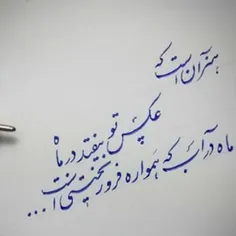 هنر آن است که
عکس تو بیفتد در ماه
ماه در آب که همواره فرو ریختنی است ...